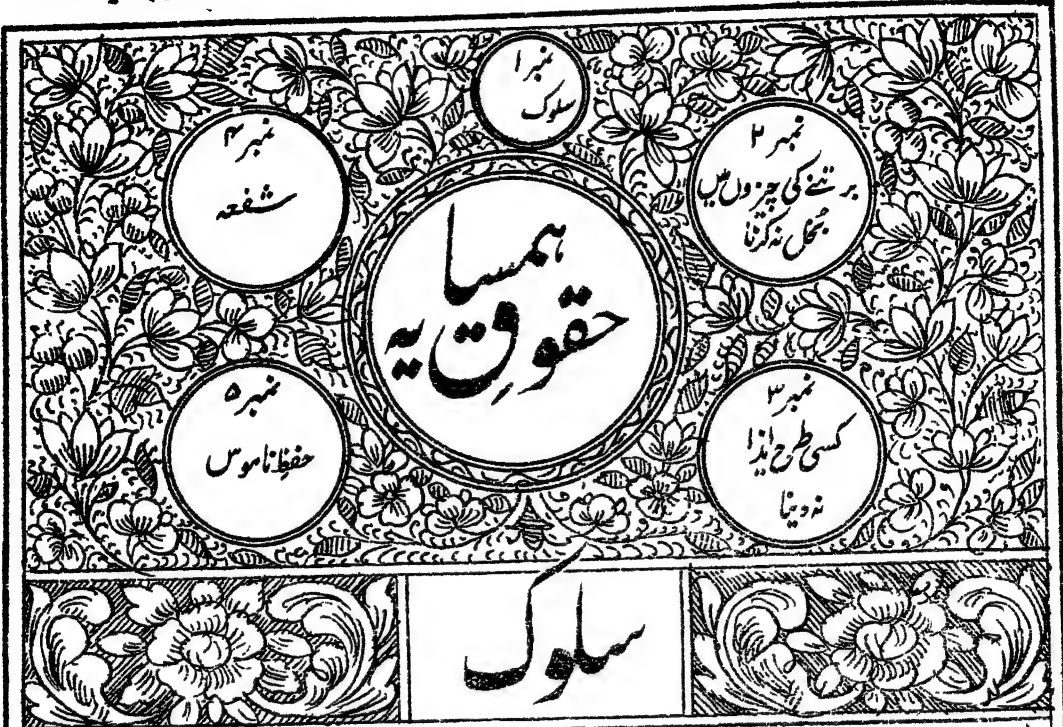 نمبر ۱
سلوک
نمبر ۲
برتنے کی چیزوں میں
بخل نہ کرنا
نمبر ۳
کسی طرح ایذا
نہ دینا
نمبر ۴
شفعہ
نمبر ۵
حفظِ ناموس
حقوقِ ہمسایہ
سلوک